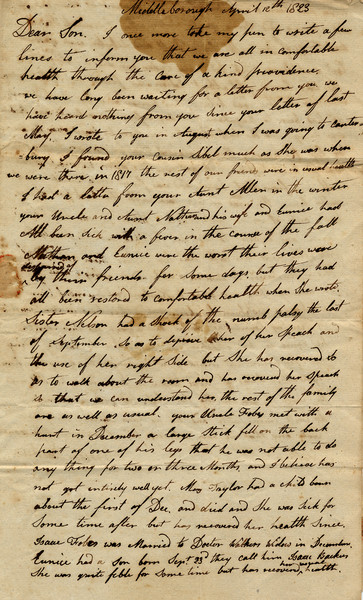 Middleborough April 12th 1823
Dear Son. I once more take my pen to write a few
lines to inform you that we are all in comfortable
health through the care of a kind providence.
we have long been waiting for a letter from you, we
have heard nothing from you since your letter of last
May, I wrote to you in August when I was going to Canter
bury I found your Cousin Sibel much as She was when
we were there in 1817 the rest of our friends were in usual health
I had a latta from your Aunt Allen in the winter
your Uncle and Aunt Nathan his wife and Eunice had
All been sick with a fever in the course of the fall
Nathan and Eunice were the worst their lives were
by their friends for some days, but they had
all been restord to comfortable health when she wrote.
Sister Nelson had a Shock of the numb palsy the last
of September So as to deprive her of her Speach and
the use of her right Side but She has recovered So
as to walk about the room and has recoverd her Speach
So that we can understand her, the rest of the family
are as well as usual. your Uncle Fobes met with a
hurt in December a large Stick fell on the back
part of one of his legs that he was not able to do
any thing for two or three Months, and I believe has
not got intirely well yet. Mrs Taylor had a child born
about the first of Dec, and died and She was Sick for
Some time after but has recoverd her health Since.
Isaac Fobes was Married to Doctor Wilkers Widow in December
Eunice had a Son born Sept. 23d they call him Isaac Backus
She was quite feble for Some time but has recoverd her usual health.